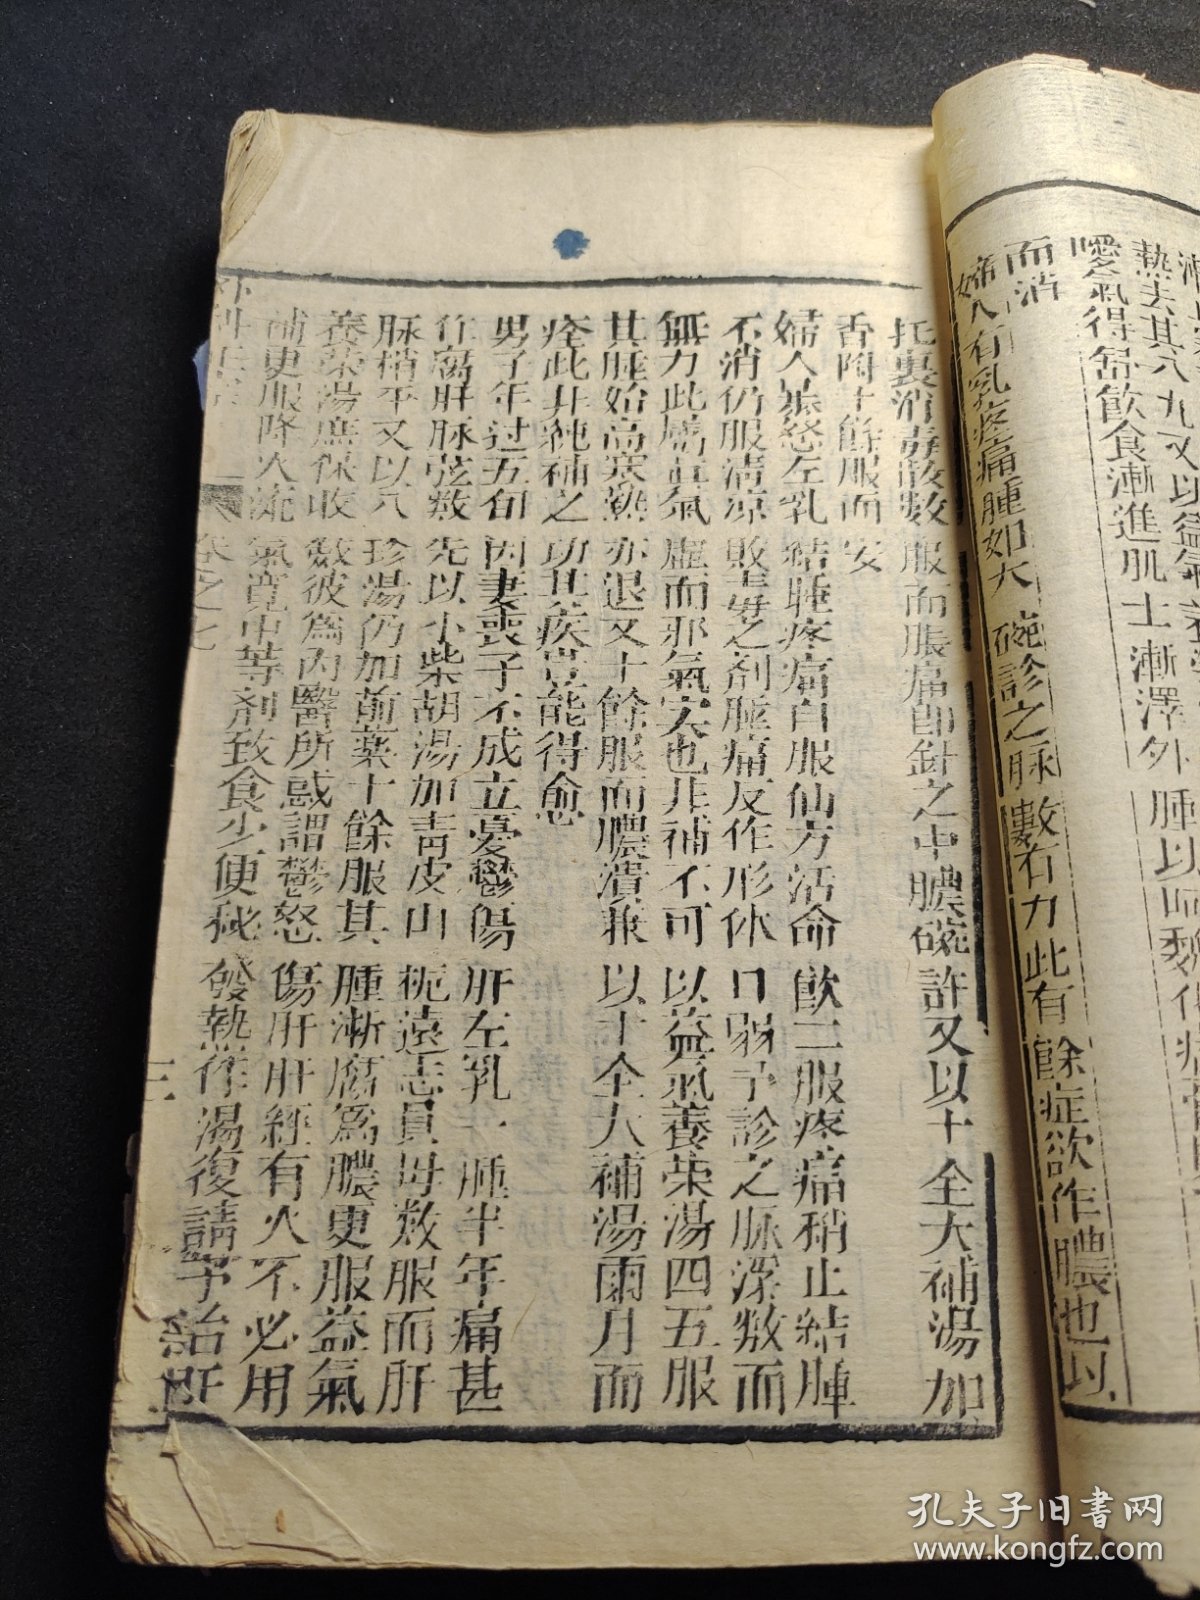 熱去其八九又以益氣養榮湯
噯氣得舒飲食漸進肌土漸澤外腫以
而消
婦人有乳疼痛腫如大碗診之脉數有力此有餘症欲作膿也以
托裏消毒散數服而脹痛即針之中膿碗許又以十全大補湯加
香附十餘服而安
婦人暴怒左乳結腫疼痛自服仙方活命飲二服疼痛稍止結腫
不消仍服清凉敗毒之剤腫痛反作形体日弱予診之脉深数而
無力此属真氣虚而邪氣实也非補不可以益氣養荣湯四五服
其腫始高寒熱亦退又十餘服而膿潰兼以十全大補湯両月而
痊此井純補之功其疾豈能得愈
男子年过五旬因妻喪子不成立憂鬱傷肝左乳一腫半年痛甚
作腐肝脉弦数先以小柴胡湯加青皮山栀遠志貝母数服而肝
脉稍平又以八珍湯仍加前薬十餘服其腫漸腐為膿更服益氣
養荣湯庶保收敛彼為内醫所惑謂鬱怒傷肝肝經有火不必用
補更服降火流氣寛中等剤致食少便秘發熱作渴復請予治肝
卷之七
三
孔夫子旧书网
www.kongfz.com